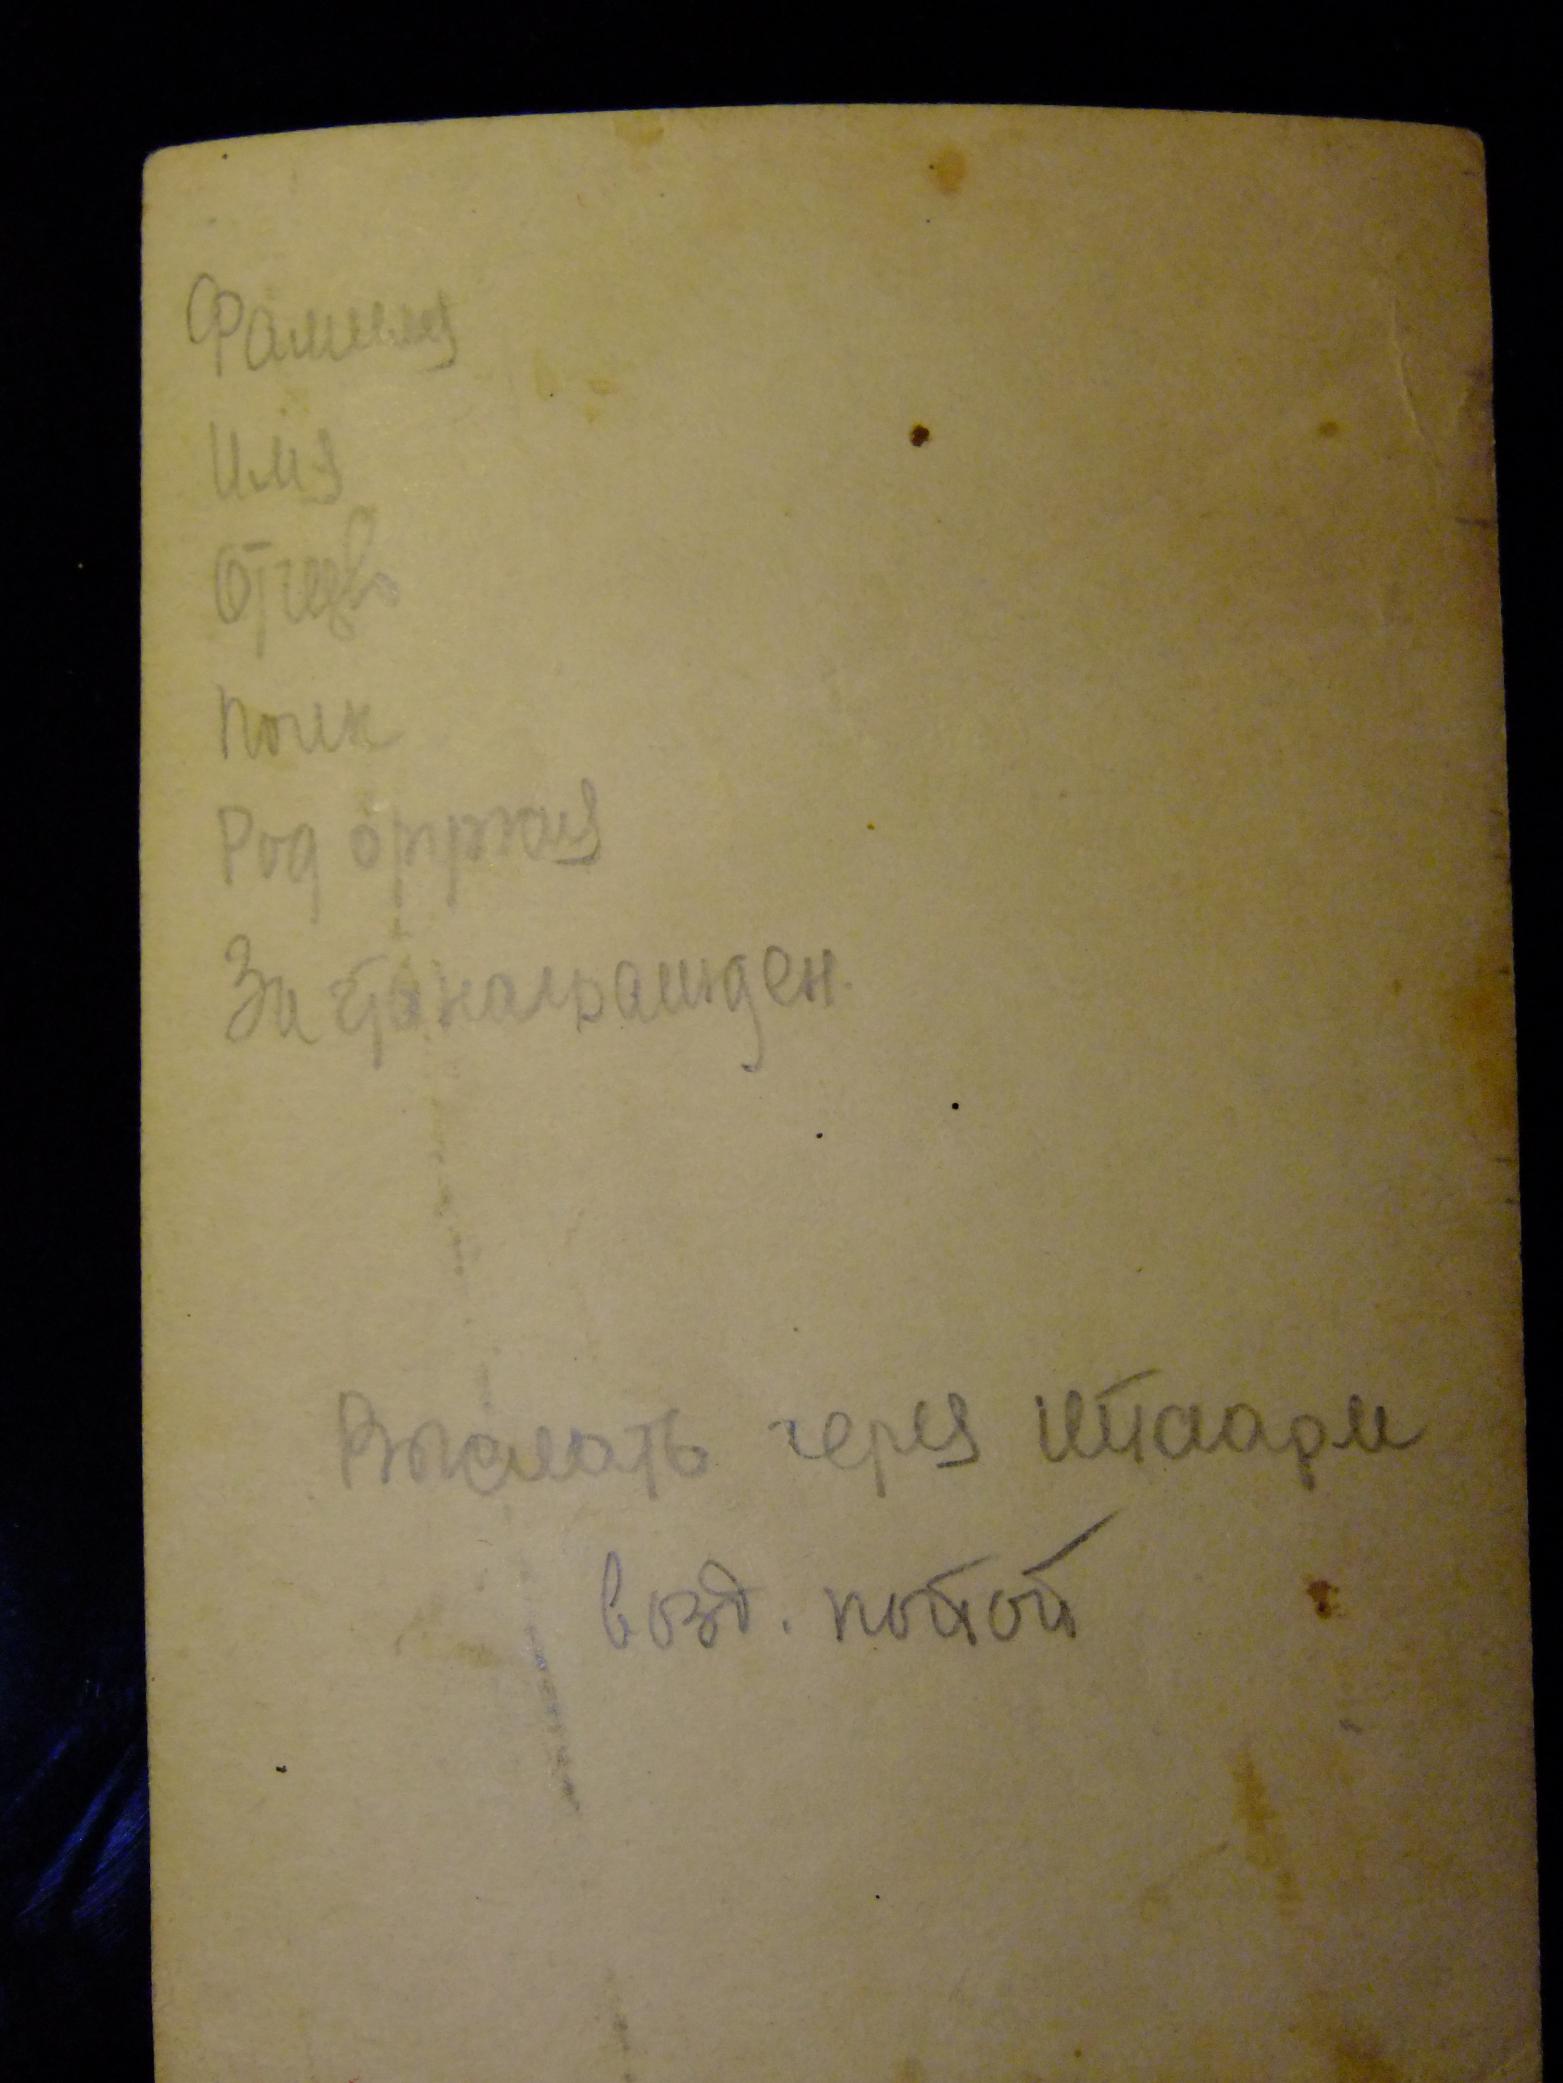 Фамилия
Имя
Отчество
Полк
Род оружия
За что награжден.
Выслать через штаарм
возд. почтой